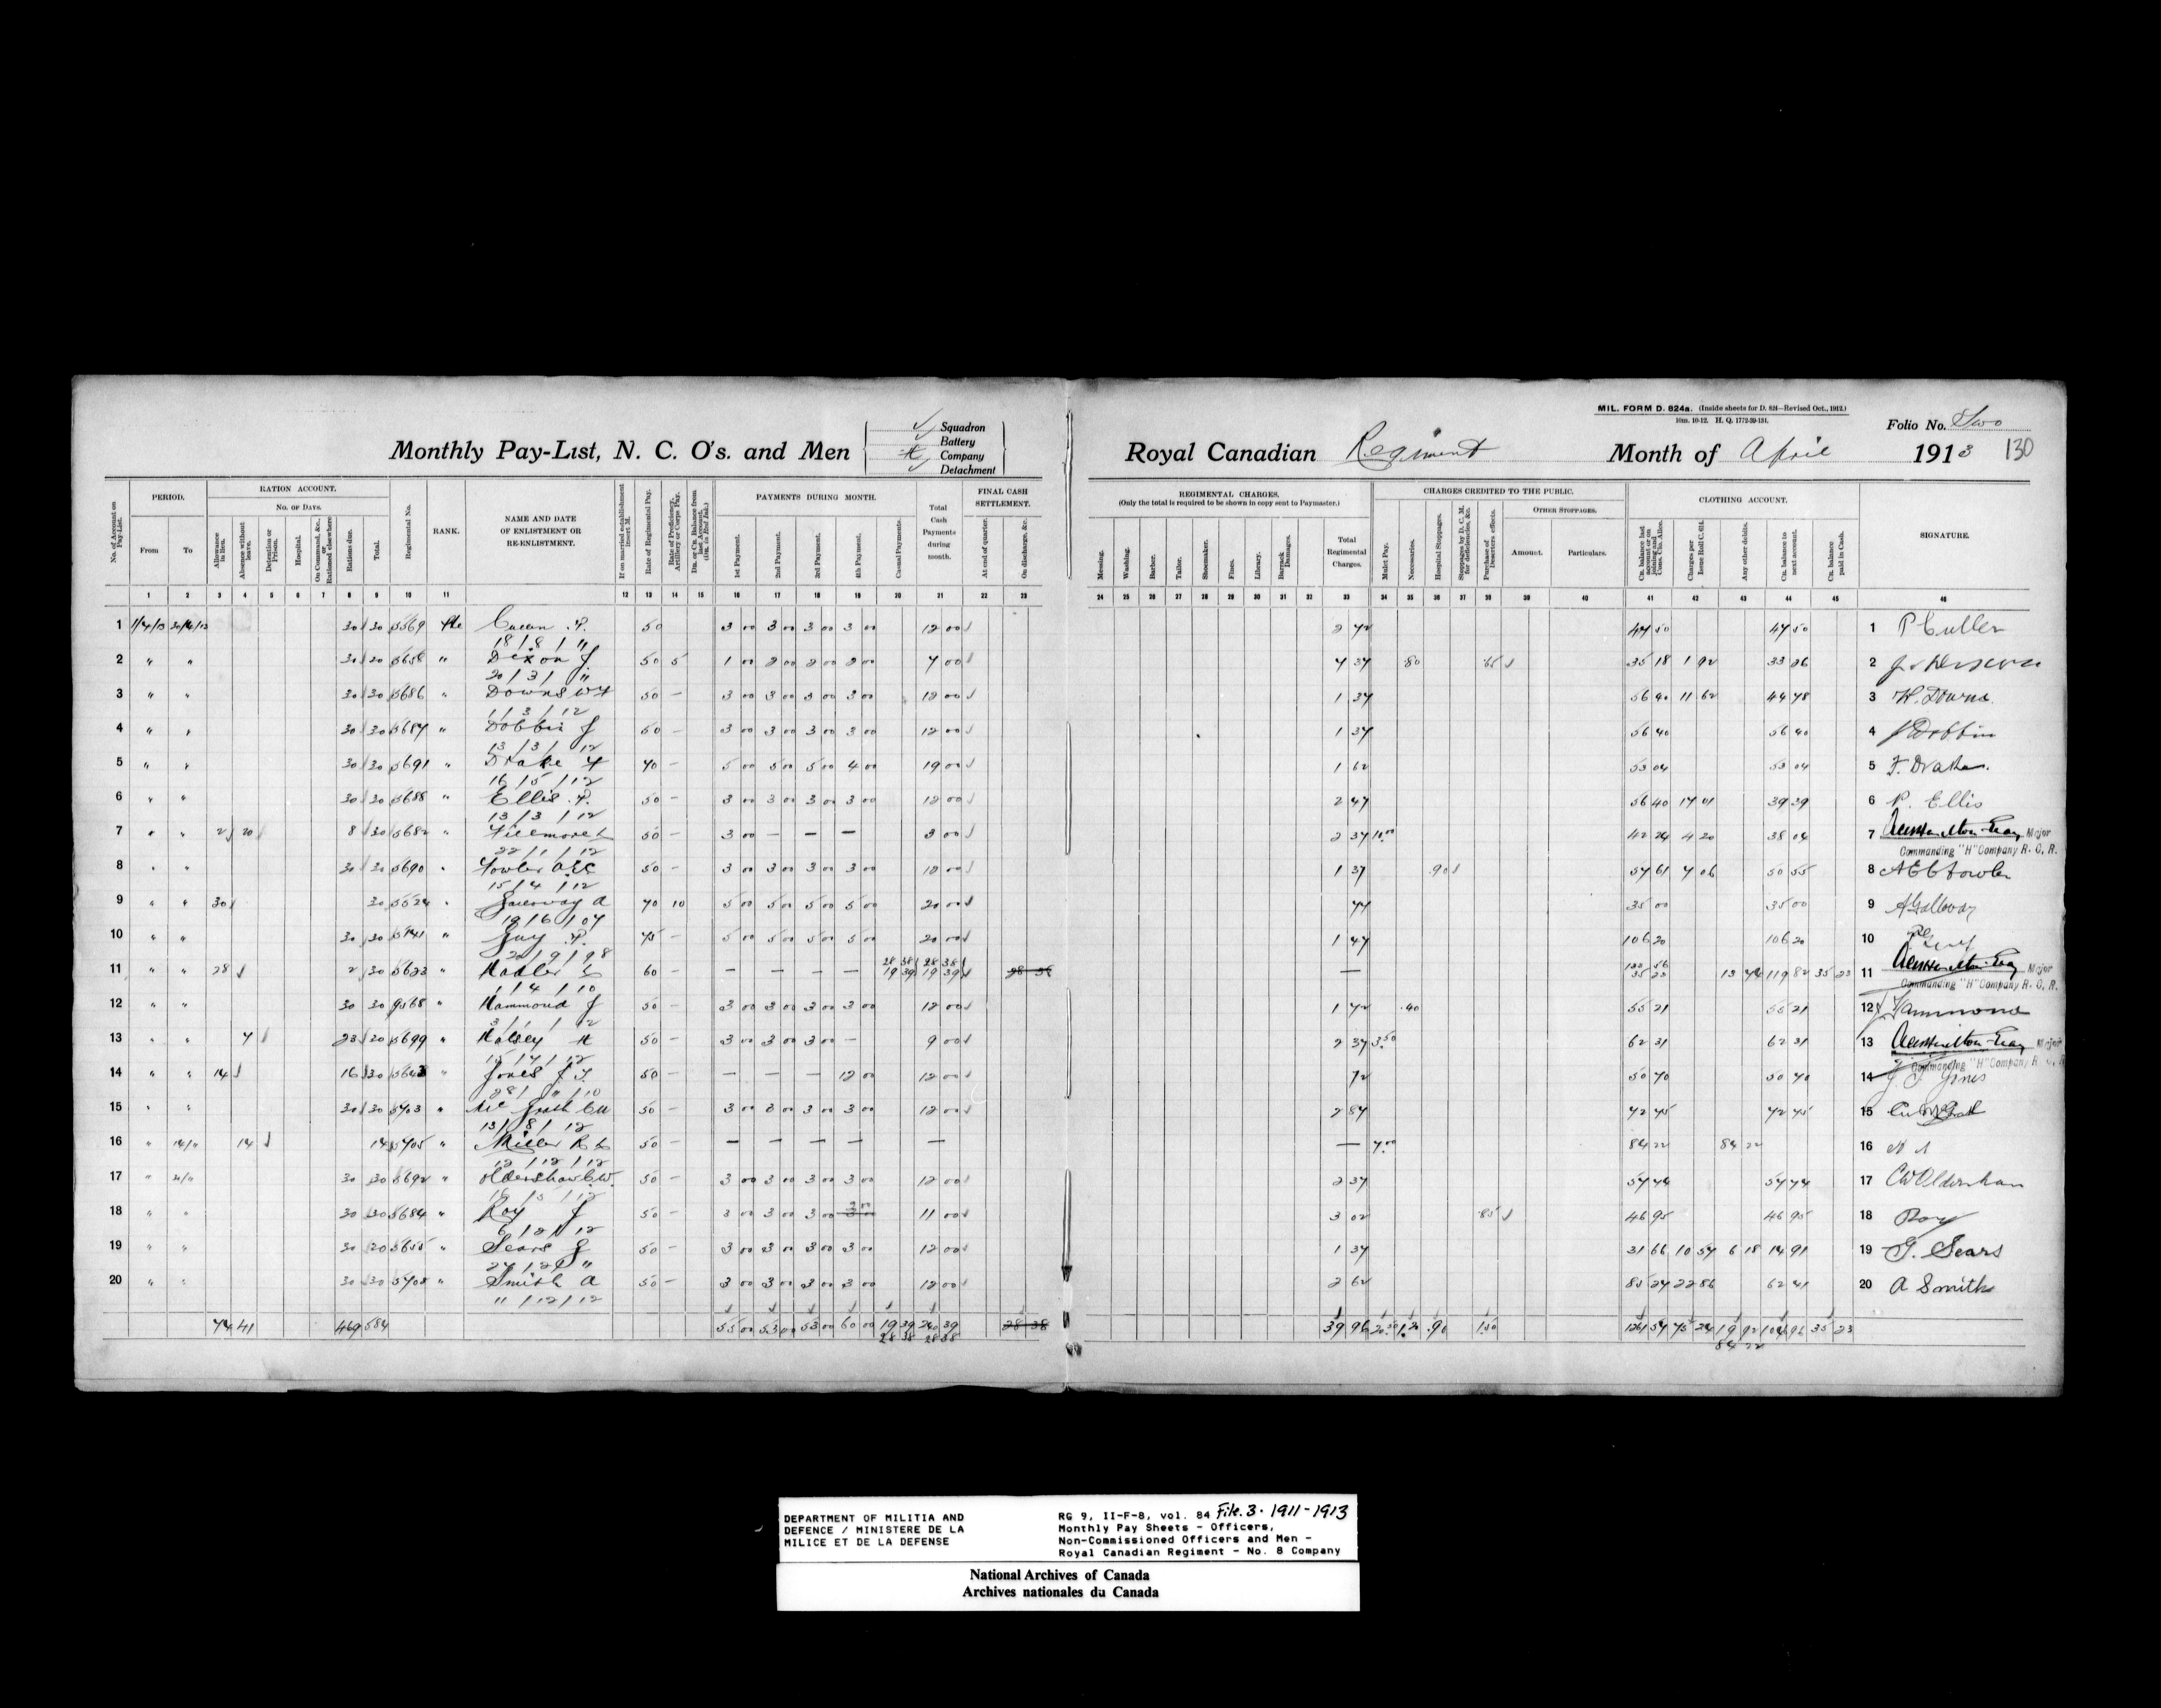 MIL. FORM D. 824a. (Inside sheets for D. 824—Revised Oct., 1912.)
10m. 10-12. H. Q. 1772-39-131.
Folio No. Two
Monthly Pay-List, N. C. O's. and Men
Squadron
Battery
H Company
Detachment
Royal Canadian Regiment Month of April 1913 130
No. of Account on Pay-List.
PERIOD.
From To
RATION ACCOUNT.
No. of Days.
Allowance in lieu.
Absence without leave.
Detention or Prison.
Hospital.
On Command, &c., or Rationed elsewhere
Rations due.
Total.
Regimental No.
RANK.
NAME AND DATE OF ENLISTMENT OR RE-ENLISTMENT.
If on married establishment insert M.
Rate of Regimental Pay.
Rate of Proficiency, Artillery or Corps Pay.
Dr. or Cr. Balance from last Account. (Dr. in Red Ink.)
PAYMENTS DURING MONTH.
1st Payment.
2nd Payment.
3rd Payment.
4th Payment.
Casual Payments.
Total Cash Payments during month.
FINAL CASH SETTLEMENT.
At end of quarter.
On discharge, &c.
REGIMENTAL CHARGES.
(Only the total is required to be shown in copy sent to Paymaster.)
Messing.
Washing.
Barber.
Tailor.
Shoemaker.
Fines.
Library.
Barrack Damages.
Total Regimental Charges.
CHARGES CREDITED TO THE PUBLIC.
Mulct Pay.
Necessaries.
Hospital Stoppages.
Stoppages by D. C. M. for deficiencies, &c.
Purchase of Deserters effects.
OTHER STOPPAGES.
Amount.
Particulars.
CLOTHING ACCOUNT.
Cr. balance last account or on joining and Cons. Clo. Allce.
Charges per Issue Roll C. 614.
Any other debits.
Cr. balance to next account.
Cr. balance paid in Cash.
SIGNATURE.
1 2 3 4 5 6 7 8 9 10 11 12 13 14 15 16 17 18 19 20 21 22 23 24 25 26 27 28 29 30 31 32 33 34 35 36 37 38 39 40 41 42 43 44 45 46
1 1/4/13 30/4/13 30 30 5569 Pte P. 50 3 00 3 00 3 00 3 00 12 00 2 42 47 50 47 50 1 P Cullen
18/8/11
2 " " 30 30 5658 " Dixon J. 50 5 1 00 2 00 2 00 2 00 7 00 4 37 .80 .65 35 18 1 92 33 26 2
20/3/11
3 " " 30 30 5686 " Downs 50 — 3 00 3 00 3 00 3 00 12 00 1 37 56 40 11 62 44 78 3
1/3/12
4 " " 30 30 5687 " Dobbin J 50 — 3 00 3 00 3 00 3 00 12 00 1 37 56 40 56 40 4 J Dobbin
13/3/12
5 " " 30 30 5691 " Drake F 70 — 5 00 5 00 5 00 4 00 19 00 1 62 53 04 53 04 5 F. Drake
16/5/12
6 " " 30 30 5688 " Ellis P. 50 — 3 00 3 00 3 00 3 00 12 00 2 47 56 40 17 01 39 39 6 P. Ellis
13/3/12
7 " " 2 20 8 30 5682 " Fillmore L 50 — 3 00 — — — 3 00 2 37 10.00 42 24 4 20 38 04 7 Major
22/1/12 Commanding "H" Company R. C. R.
8 " " 30 30 5690 " Fowler 50 — 3 00 3 00 3 00 3 00 12 00 1 37 .90 57 61 7 06 50 55 8 Fowler
15/4/12
9 " " 30 30 5524 " A 70 10 5 00 5 00 5 00 5 00 20 00 77 35 00 35 00 9 A Galloway
19/6/07
10 " " 30 30 5141 " Guy P. 75 — 5 00 5 00 5 00 5 00 20 00 1 47 106 20 106 20 10
20/9/98 28 38 28 38
11 " " 28 2 30 5623 " 60 — — — — — 19 39 19 39 28 38 — 35 23 13 74 119 82 35 23 11 Major
1/4/10 Commanding "H" Company R. C. R.
12 " " 30 30 9568 " Hammond J 50 — 3 00 3 00 3 00 3 00 12 00 1 72 .40 55 21 55 21 12 J Hammond
3/1/12
13 " " 7 23 30 5699 " Halsey H 50 — 3 00 3 00 3 00 — 9 00 2 37 3.50 62 31 62 31 13 Major
15/7/12 Commanding "H" Company R. C. R.
14 " " 14 16 30 5643 " Jones J T. 50 — — — — 12 00 12 00 72 50 70 50 70 14 J T Jones
28/ " /10
15 " " 30 30 5703 " 50 — 3 00 3 00 3 00 3 00 12 00 2 87 42 45 42 45 15
13/8/12
16 " 14/" 14 14 5705 " Miller R L 50 — — — — — — — 7.00 84 22 84 22 16
12/12/12
17 " 30/" 30 30 5692 " Oldershaw C.W. 50 — 3 00 3 00 3 00 3 00 12 00 2 37 57 74 57 74 17 CW Oldershaw
16/5/12
18 " " 30 30 5684 " Roy J 50 — 3 00 3 00 3 00 2 00 11 00 3 02 .85 46 95 46 95 18 Roy
6/2/12
19 " " 30 30 5655 " Sears G 50 — 3 00 3 00 3 00 3 00 12 00 1 37 31 66 10 57 6 18 14 91 19 G. Sears
27/2/11
20 " " 30 30 5708 " Smith A 50 — 3 00 3 00 3 00 3 00 12 00 2 62 85 27 22 86 62 41 20 A Smith
" /12/12
74 41 469 584 55 00 53 00 53 00 60 00 19 39 240 39 28 38 39 96 20.50 1.20 .90 1.50 75 24 19 92 35 23
28 38 28 38 84 22
DEPARTMENT OF MILITIA AND
DEFENCE / MINISTERE DE LA
MILICE ET DE LA DEFENSE
RG 9, II-F-8, vol. 84 File. 3. 1911-1913
Monthly Pay Sheets - Officers,
Non-Commissioned Officers and Men -
Royal Canadian Regiment - No. 8 Company
National Archives of Canada
Archives nationales du Canada